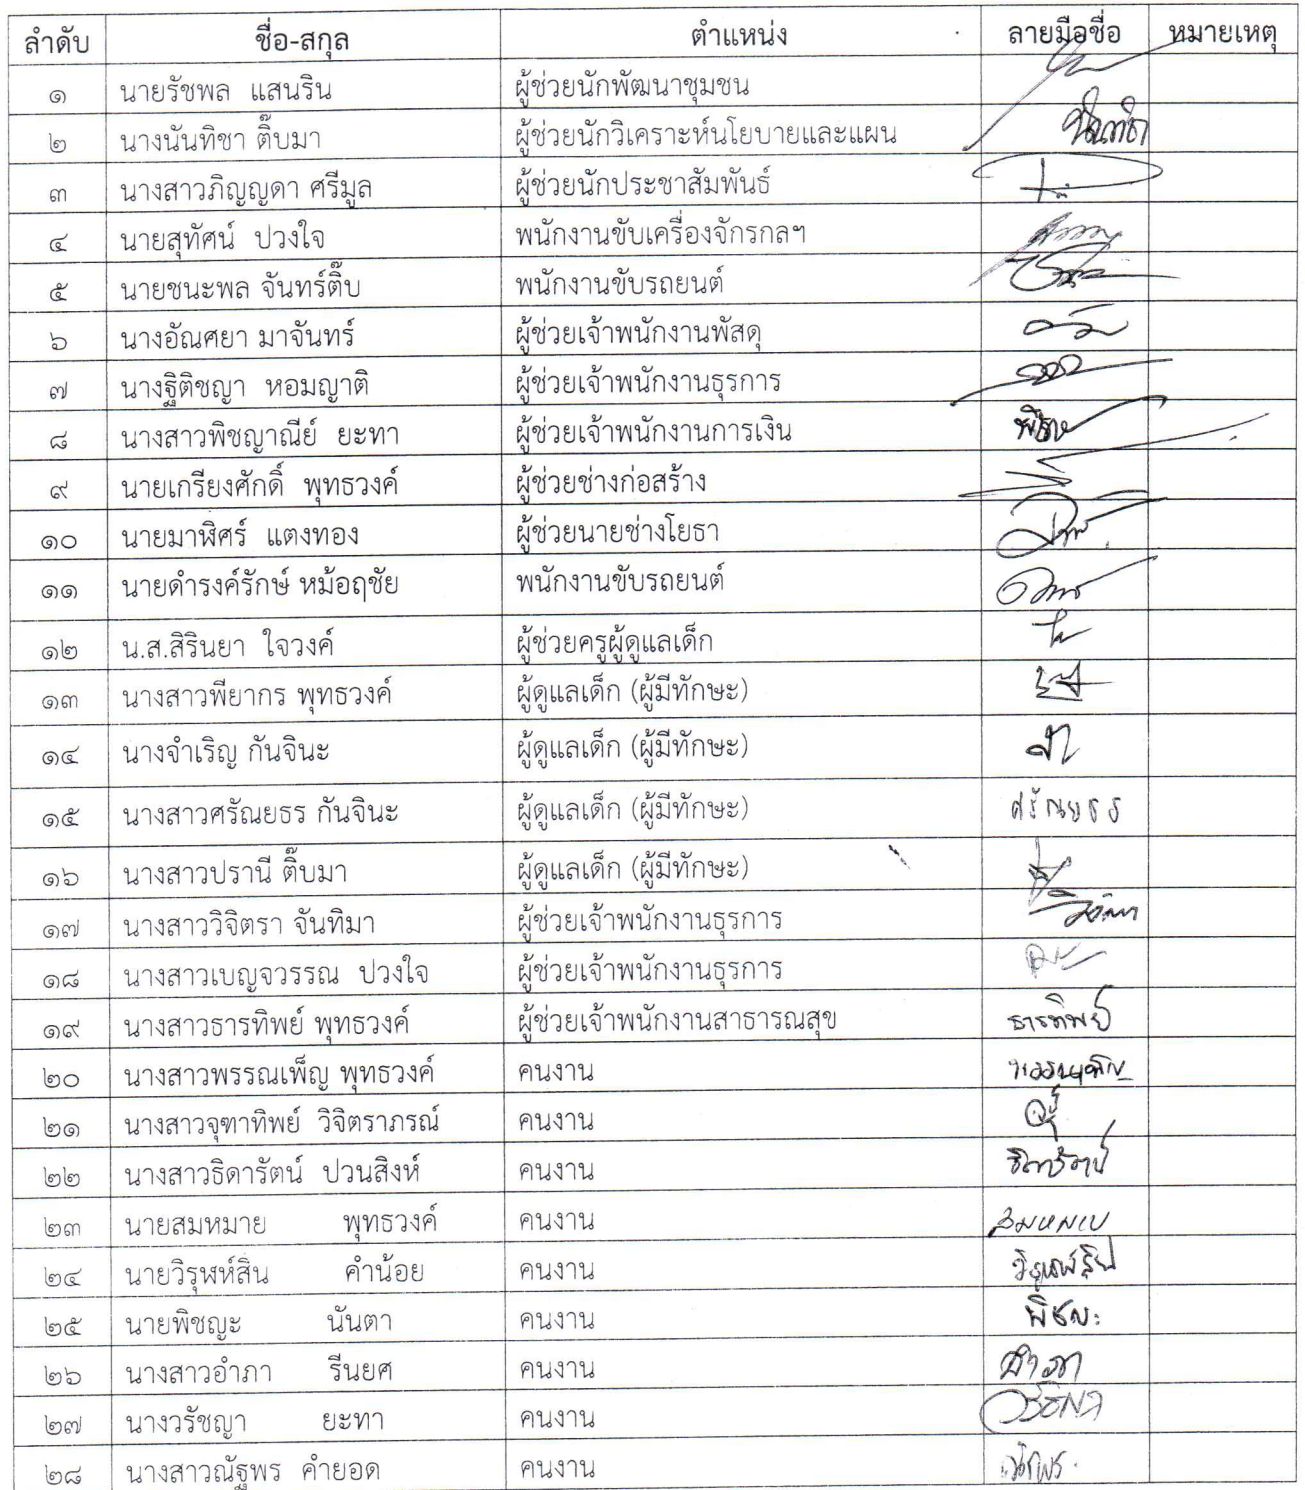 ลำดับ ชื่อ-สกุล ตำแหน่ง ลายมือชื่อ หมายเหตุ
๑ นายรัชพล แสนริน ผู้ช่วยนักพัฒนาชุมชน
๒ นางนันทิชา ติ๊บมา ผู้ช่วยนักวิเคราะห์นโยบายและแผน
๓ นางสาวภิญญดา ศรีมูล ผู้ช่วยนักประชาสัมพันธ์
๔ นายสุทัศน์ ปวงใจ พนักงานขับเครื่องจักรกลฯ
๕ นายชนะพล จันทร์ติ๊บ พนักงานขับรถยนต์
๖ นางอัณศยา มาจันทร์ ผู้ช่วยเจ้าพนักงานพัสดุ
๗ นางฐิติชญา หอมญาติ ผู้ช่วยเจ้าพนักงานธุรการ
๘ นางสาวพิชญาณีย์ ยะทา ผู้ช่วยเจ้าพนักงานการเงิน
๙ นายเกรียงศักดิ์ พุทธวงค์ ผู้ช่วยช่างก่อสร้าง
๑๐ นายมาฬิศร์ แตงทอง ผู้ช่วยนายช่างโยธา
๑๑ นายดำรงค์รักษ์ หม้อฤชัย พนักงานขับรถยนต์
๑๒ น.ส.สิรินยา ใจวงค์ ผู้ช่วยครูผู้ดูแลเด็ก
๑๓ นางสาวพียากร พุทธวงค์ ผู้ดูแลเด็ก (ผู้มีทักษะ)
๑๔ นางจำเริญ กันจินะ ผู้ดูแลเด็ก (ผู้มีทักษะ)
๑๕ นางสาวศรัณยธร กันจินะ ผู้ดูแลเด็ก (ผู้มีทักษะ) ศรัณยธร
๑๖ นางสาวปรานี ติ๊บมา ผู้ดูแลเด็ก (ผู้มีทักษะ)
๑๗ นางสาววิจิตรา จันทิมา ผู้ช่วยเจ้าพนักงานธุรการ
๑๘ นางสาวเบญจวรรณ ปวงใจ ผู้ช่วยเจ้าพนักงานธุรการ
๑๙ นางสาวธารทิพย์ พุทธวงค์ ผู้ช่วยเจ้าพนักงานสาธารณสุข ธารทิพย์
๒๐ นางสาวพรรณเพ็ญ พุทธวงค์ คนงาน
๒๑ นางสาวจุฑาทิพย์ วิจิตราภรณ์ คนงาน
๒๒ นางสาวธิดารัตน์ ปวนสิงห์ คนงาน
๒๓ นายสมหมาย พุทธวงค์ คนงาน สมหมาย
๒๔ นายวิรุฬห์สิน คำน้อย คนงาน
๒๕ นายพิชญะ นันตา คนงาน พิชญะ
๒๖ นางสาวอำภา รีนยศ คนงาน อำภา
๒๗ นางวรัชญา ยะทา คนงาน
๒๘ นางสาวณัฐพร คำยอด คนงาน